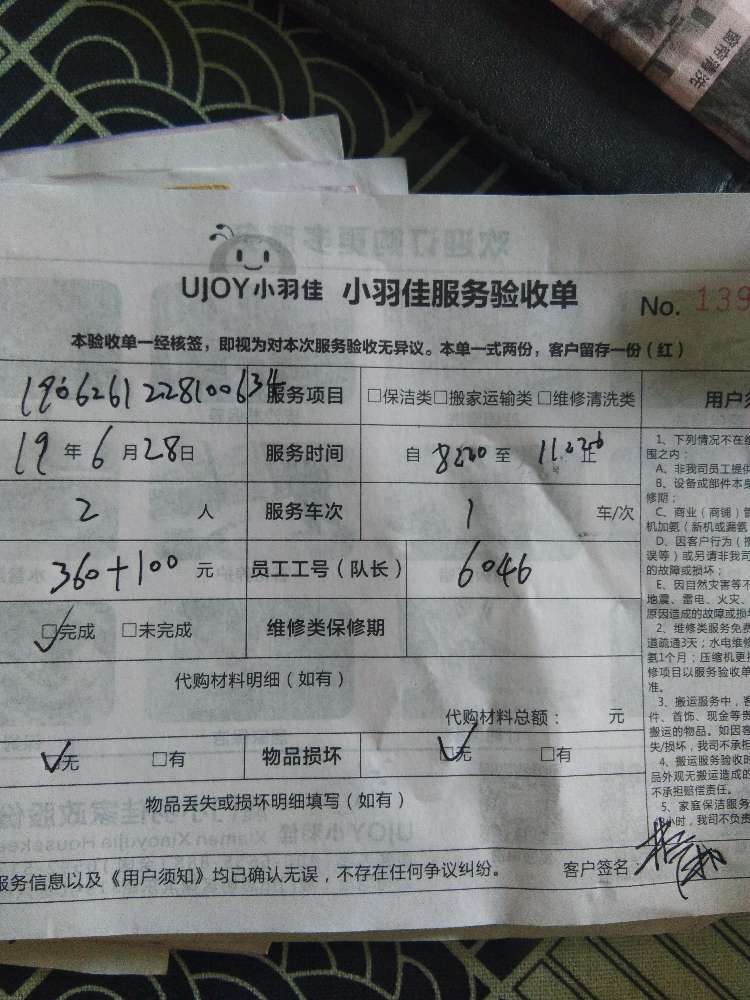 窗帘清洗
UJOY小羽佳 小羽佳服务验收单 No. 139
本验收单一经核签，即视为对本次服务验收无异议。本单一式两份，客户留存一份（红）
190626122810063 服务项目 □保洁类□搬家运输类□维修清洗类 用户须
19年6月28日 服务时间 自 8:00 至 止
2 人 服务车次 1 车/次
360+100 元 员工工号（队长） 6046
☑完成 □未完成 维修类保修期
代购材料明细（如有）
代购材料总额： 元
☑无 □有 物品损坏 ☑无 □有
物品丢失或损坏明细填写（如有）
服务信息以及《用户须知》均已确认无误，不存在任何争议纠纷。 客户签名
1、下列情况不在维
围之内：
A、非我司员工提供
B、设备或部件本身
修期；
C、商业（商铺）管
机加氨（新机或漏氨
D、因客户行为（擅
误等）或另请非我司
的故障或损坏；
E、因自然灾害等不
地震、雷电、火灾、
原因造成的故障或损坏
2、维修类服务免费
道疏通3天；水电维修
氨1个月；压缩机更换
修项目以服务验收单
准。
3、搬运服务中，客
件、首饰、现金等贵
搬运的物品。如因客
失/损坏，我司不承担
4、搬运服务验收时
品外观无搬运造成的
不承担赔偿责任。
5、家庭保洁服务
小时，我司不负责